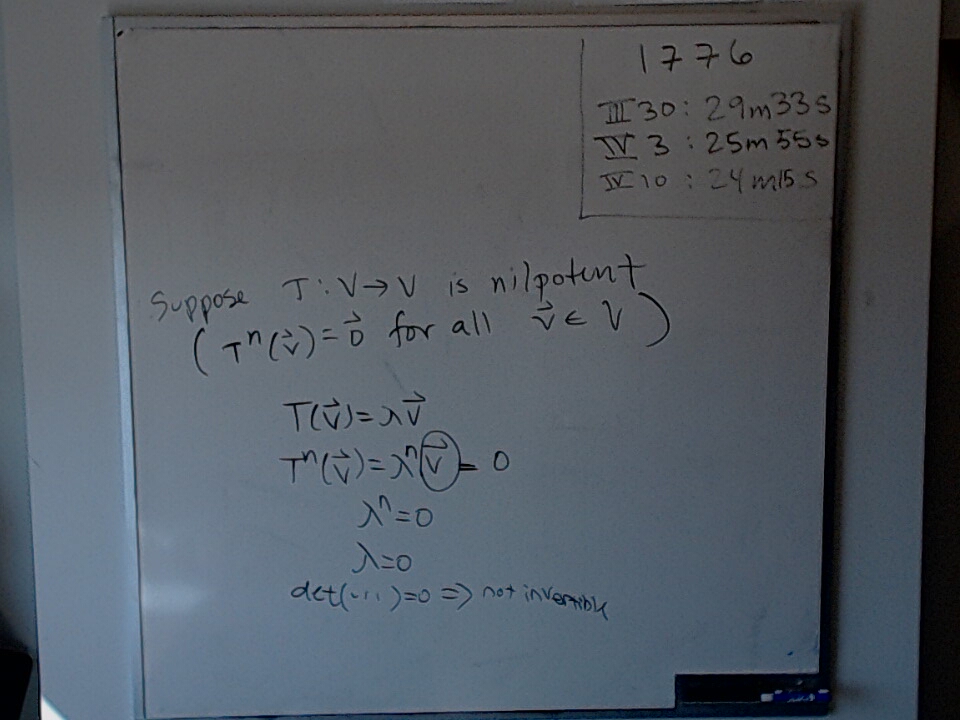 1776
III 30: 29m33s
IV 3 : 25m 55s
IV 10 : 24m15s
Suppose T: V→V is nilpotent
(Tⁿ(v⃗)=0⃗ for all v⃗ ∈ V)
T(v⃗)=λv⃗
Tⁿ(v⃗)=λⁿv⃗= 0
λⁿ=0
λ=0
det(...)=0 => not invertible